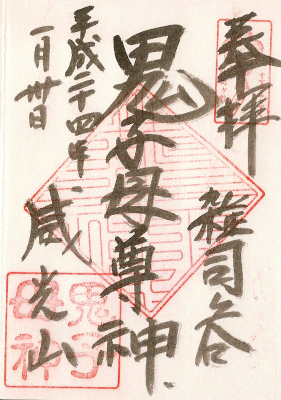 奉拝
雑司谷
鬼子母尊神
平成二十四年
一月廿日
威光山
鬼子
母神